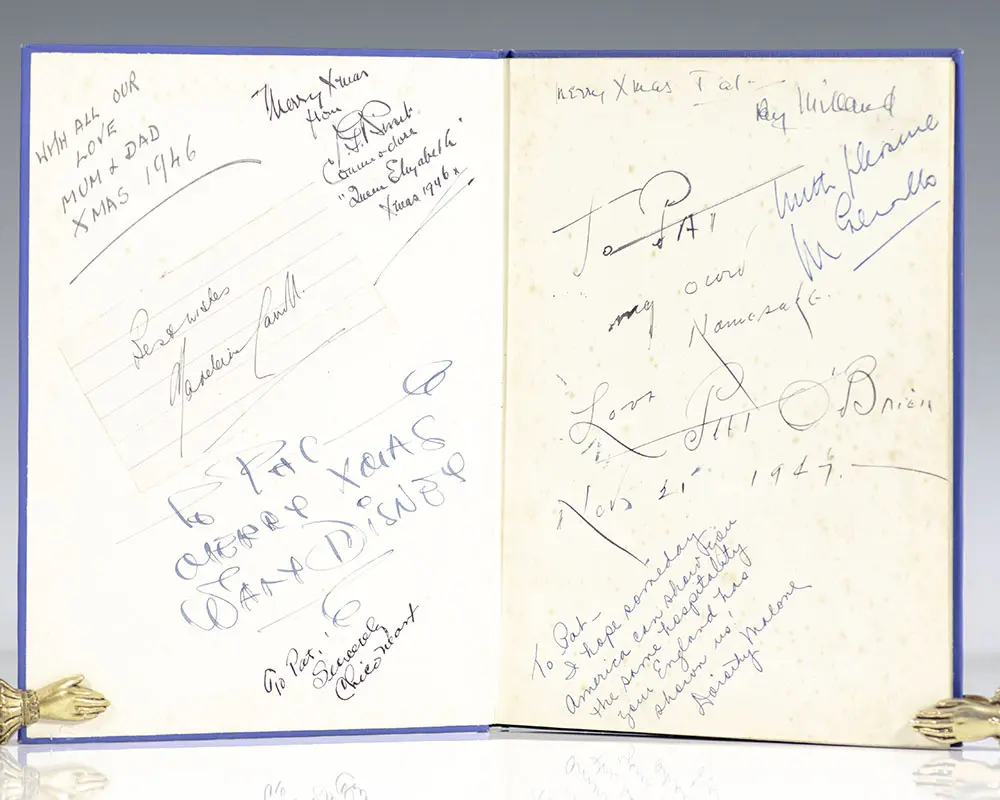 WITH ALL OUR
LOVE
MUM & DAD
XMAS 1946
Merry Xmas
from
Commodore
"Queen Elizabeth"
Xmas 1946
Best wishes
Madeleine Carroll
To PAT
MERRY XMAS
WALT DISNEY
To Pat!
Sincerely
Chico Marx
Merry Xmas Pat -
Ray Milland
With pleasure
To PAT
my own
Namesake.
Love
Pat O'Brien
Nov 1947.
To Pat -
I hope someday
America can show you
the same hospitality
your England has
shown us!
Dorothy Malone